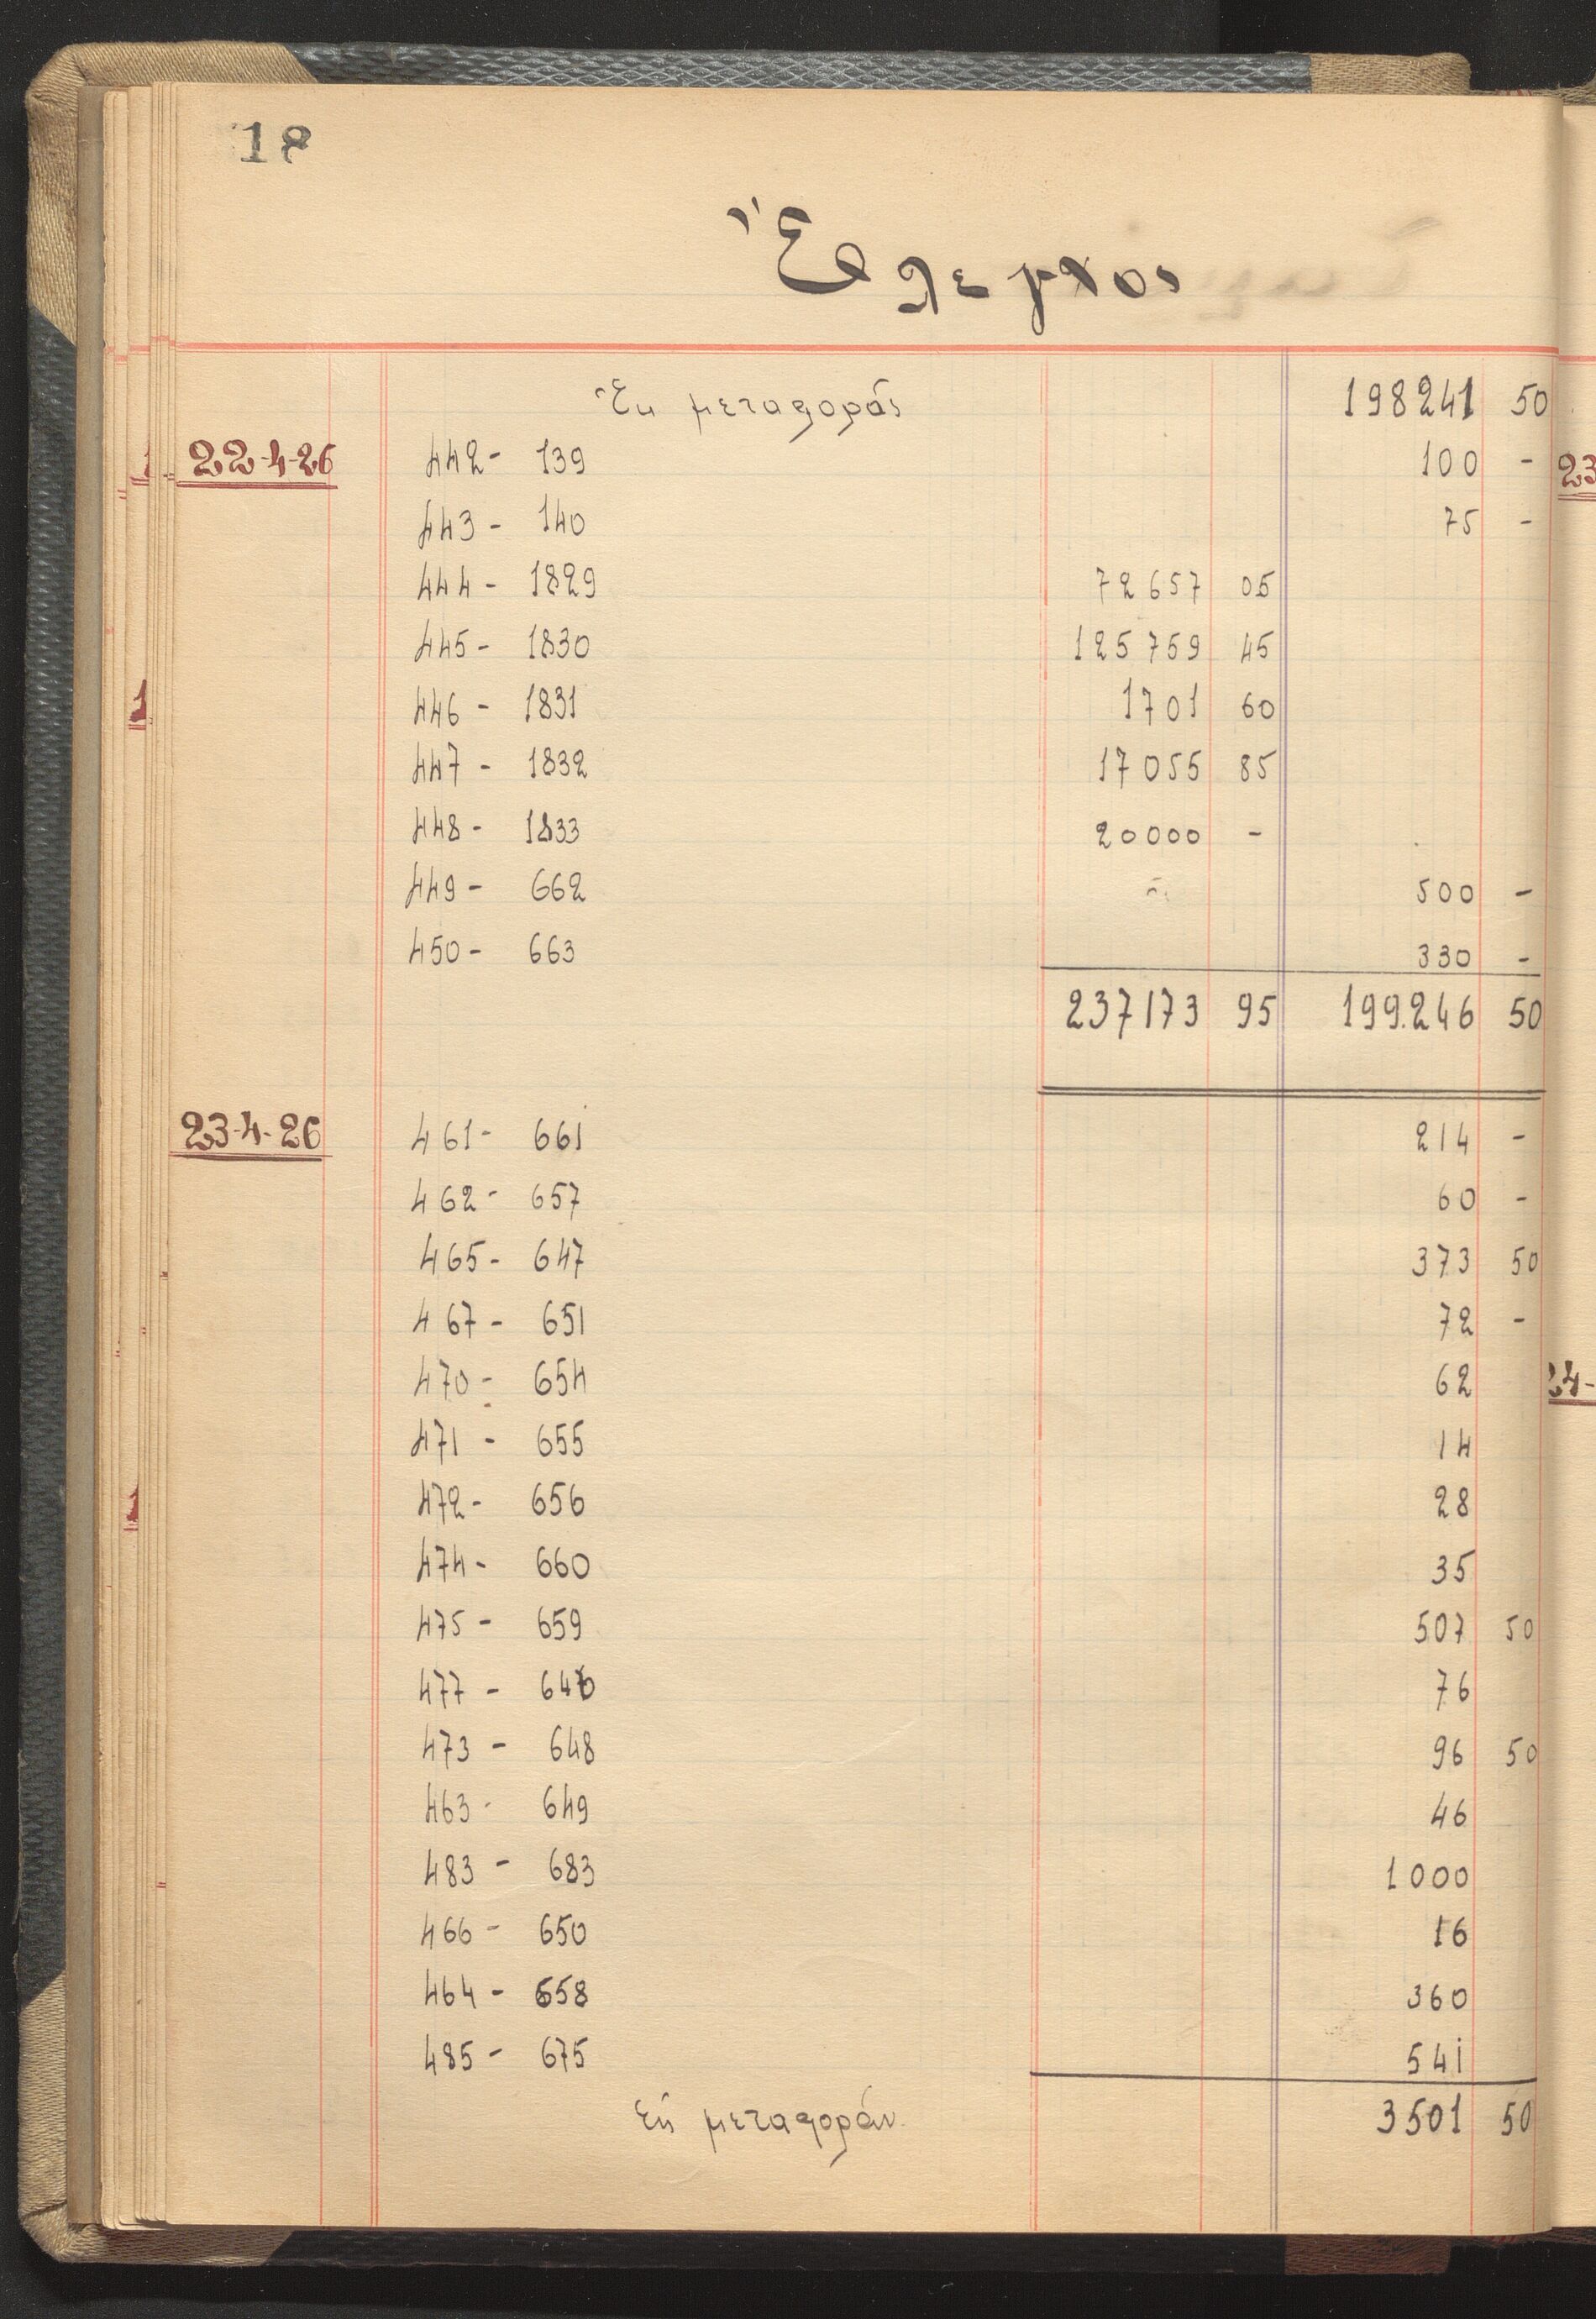 18
Ἔλεγχος
Ἐκ μεταφορᾶς 198241 50
22-4-26 442 - 139 100 -
443 - 140 75 -
444 - 1829 72657 05
445 - 1830 125759 45
446 - 1831 1701 60
447 - 1832 17055 85
448 - 1833 20000 -
449 - 662 500 -
450 - 663 330 -
237173 95 199.246 50
23-4-26 461 - 661 214 -
462 - 657 60 -
465 - 647 373 50
467 - 651 72 -
470 - 654 62
471 - 655 14
472 - 656 28
474 - 660 35
475 - 659 507 50
477 - 646 76
473 - 648 96 50
463 - 649 46
483 - 683 1000
466 - 650 16
464 - 658 360
485 - 675 541
Εἰς μεταφοράν 3501 50
23
24-